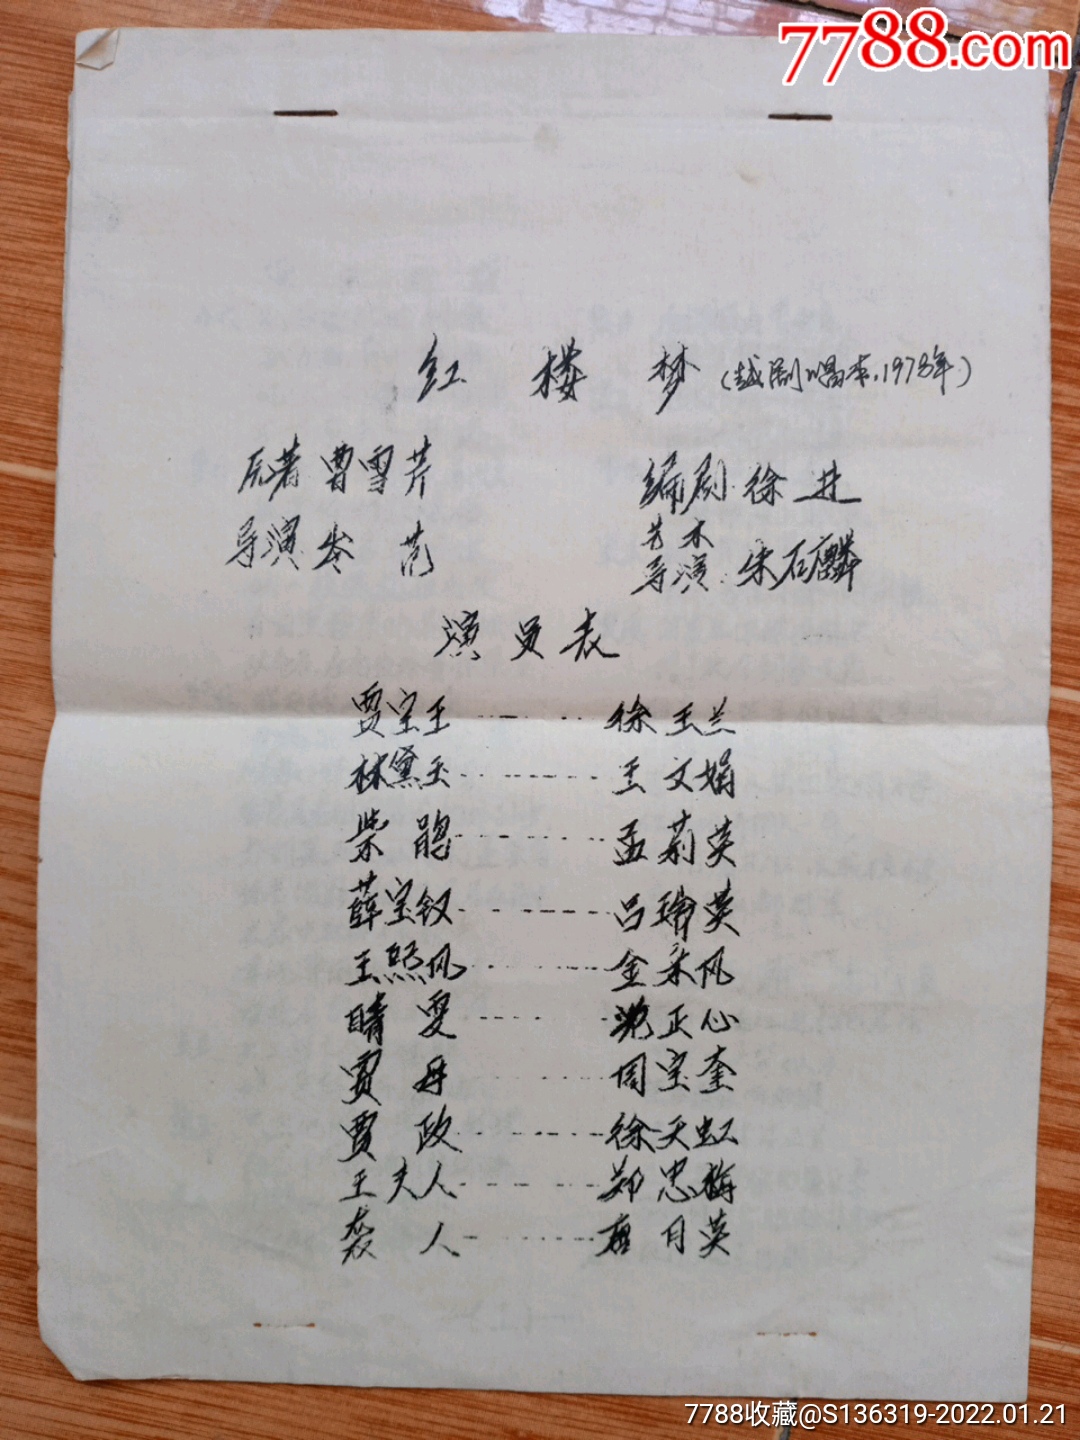 7788.com
红楼梦（越剧唱本，1978年）
原著 曹雪芹
编剧 徐进
导演 岑范
艺术导演 朱石麟
演员表
贾宝玉------徐玉兰
林黛玉------王文娟
紫鹃------孟莉英
薛宝钗------吕瑞英
王熙凤------金采风
晴雯------沈正心
贾母------周宝奎
贾政------徐天虹
王夫人------郑忠梅
袭人------唐月英
7788收藏@S136319-2022.01.21